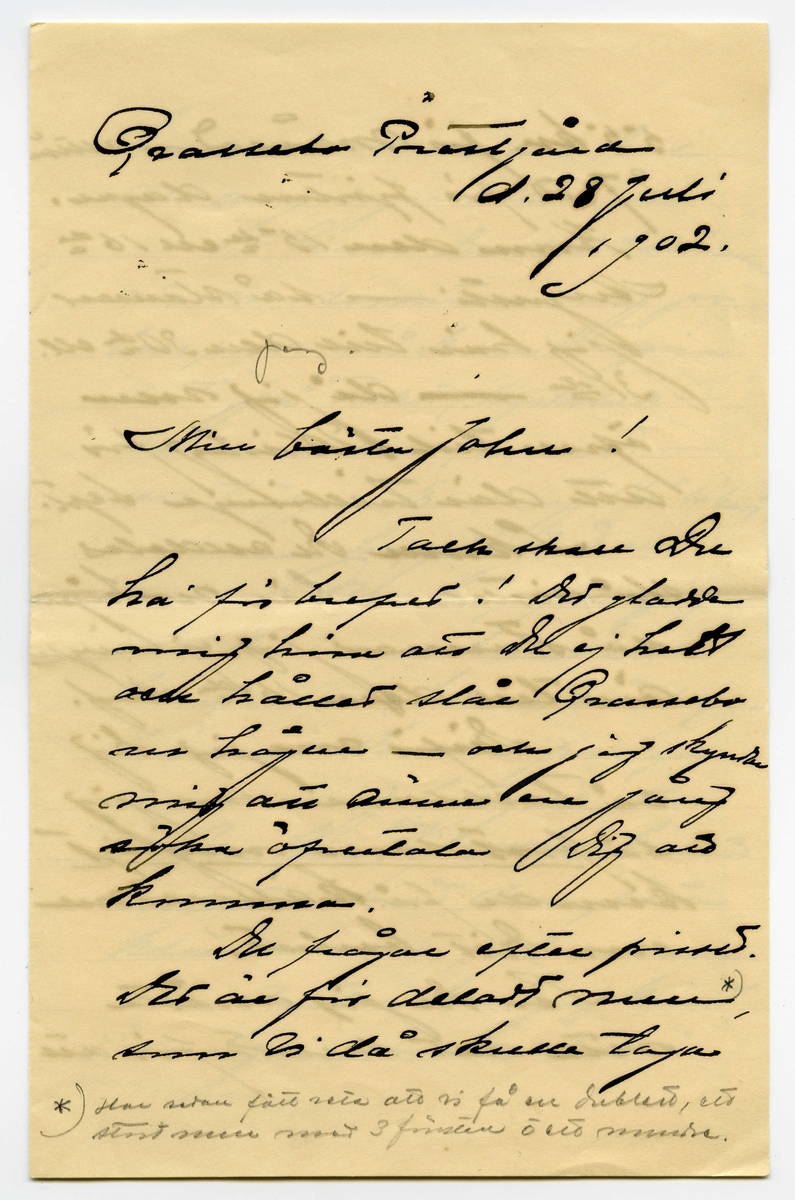 Grassebo Prästgård
d. 28 Juli
1902.
Min bästa John!
Tack skall Du
ha för brefvet! Det gladde
mig höra att Du ej helt
och hållet slår Grassebo
ur hågen — och jag skyndar
mig att ännu en gång
söka öfvertala Dig att
komma.
Du frågar efter priset.
Det är för deladt rum *),
som vi då skulle taga
*) Har sedan fått veta att vi få en dublett, ett
stort rum med 3 fönster o ett mindre.